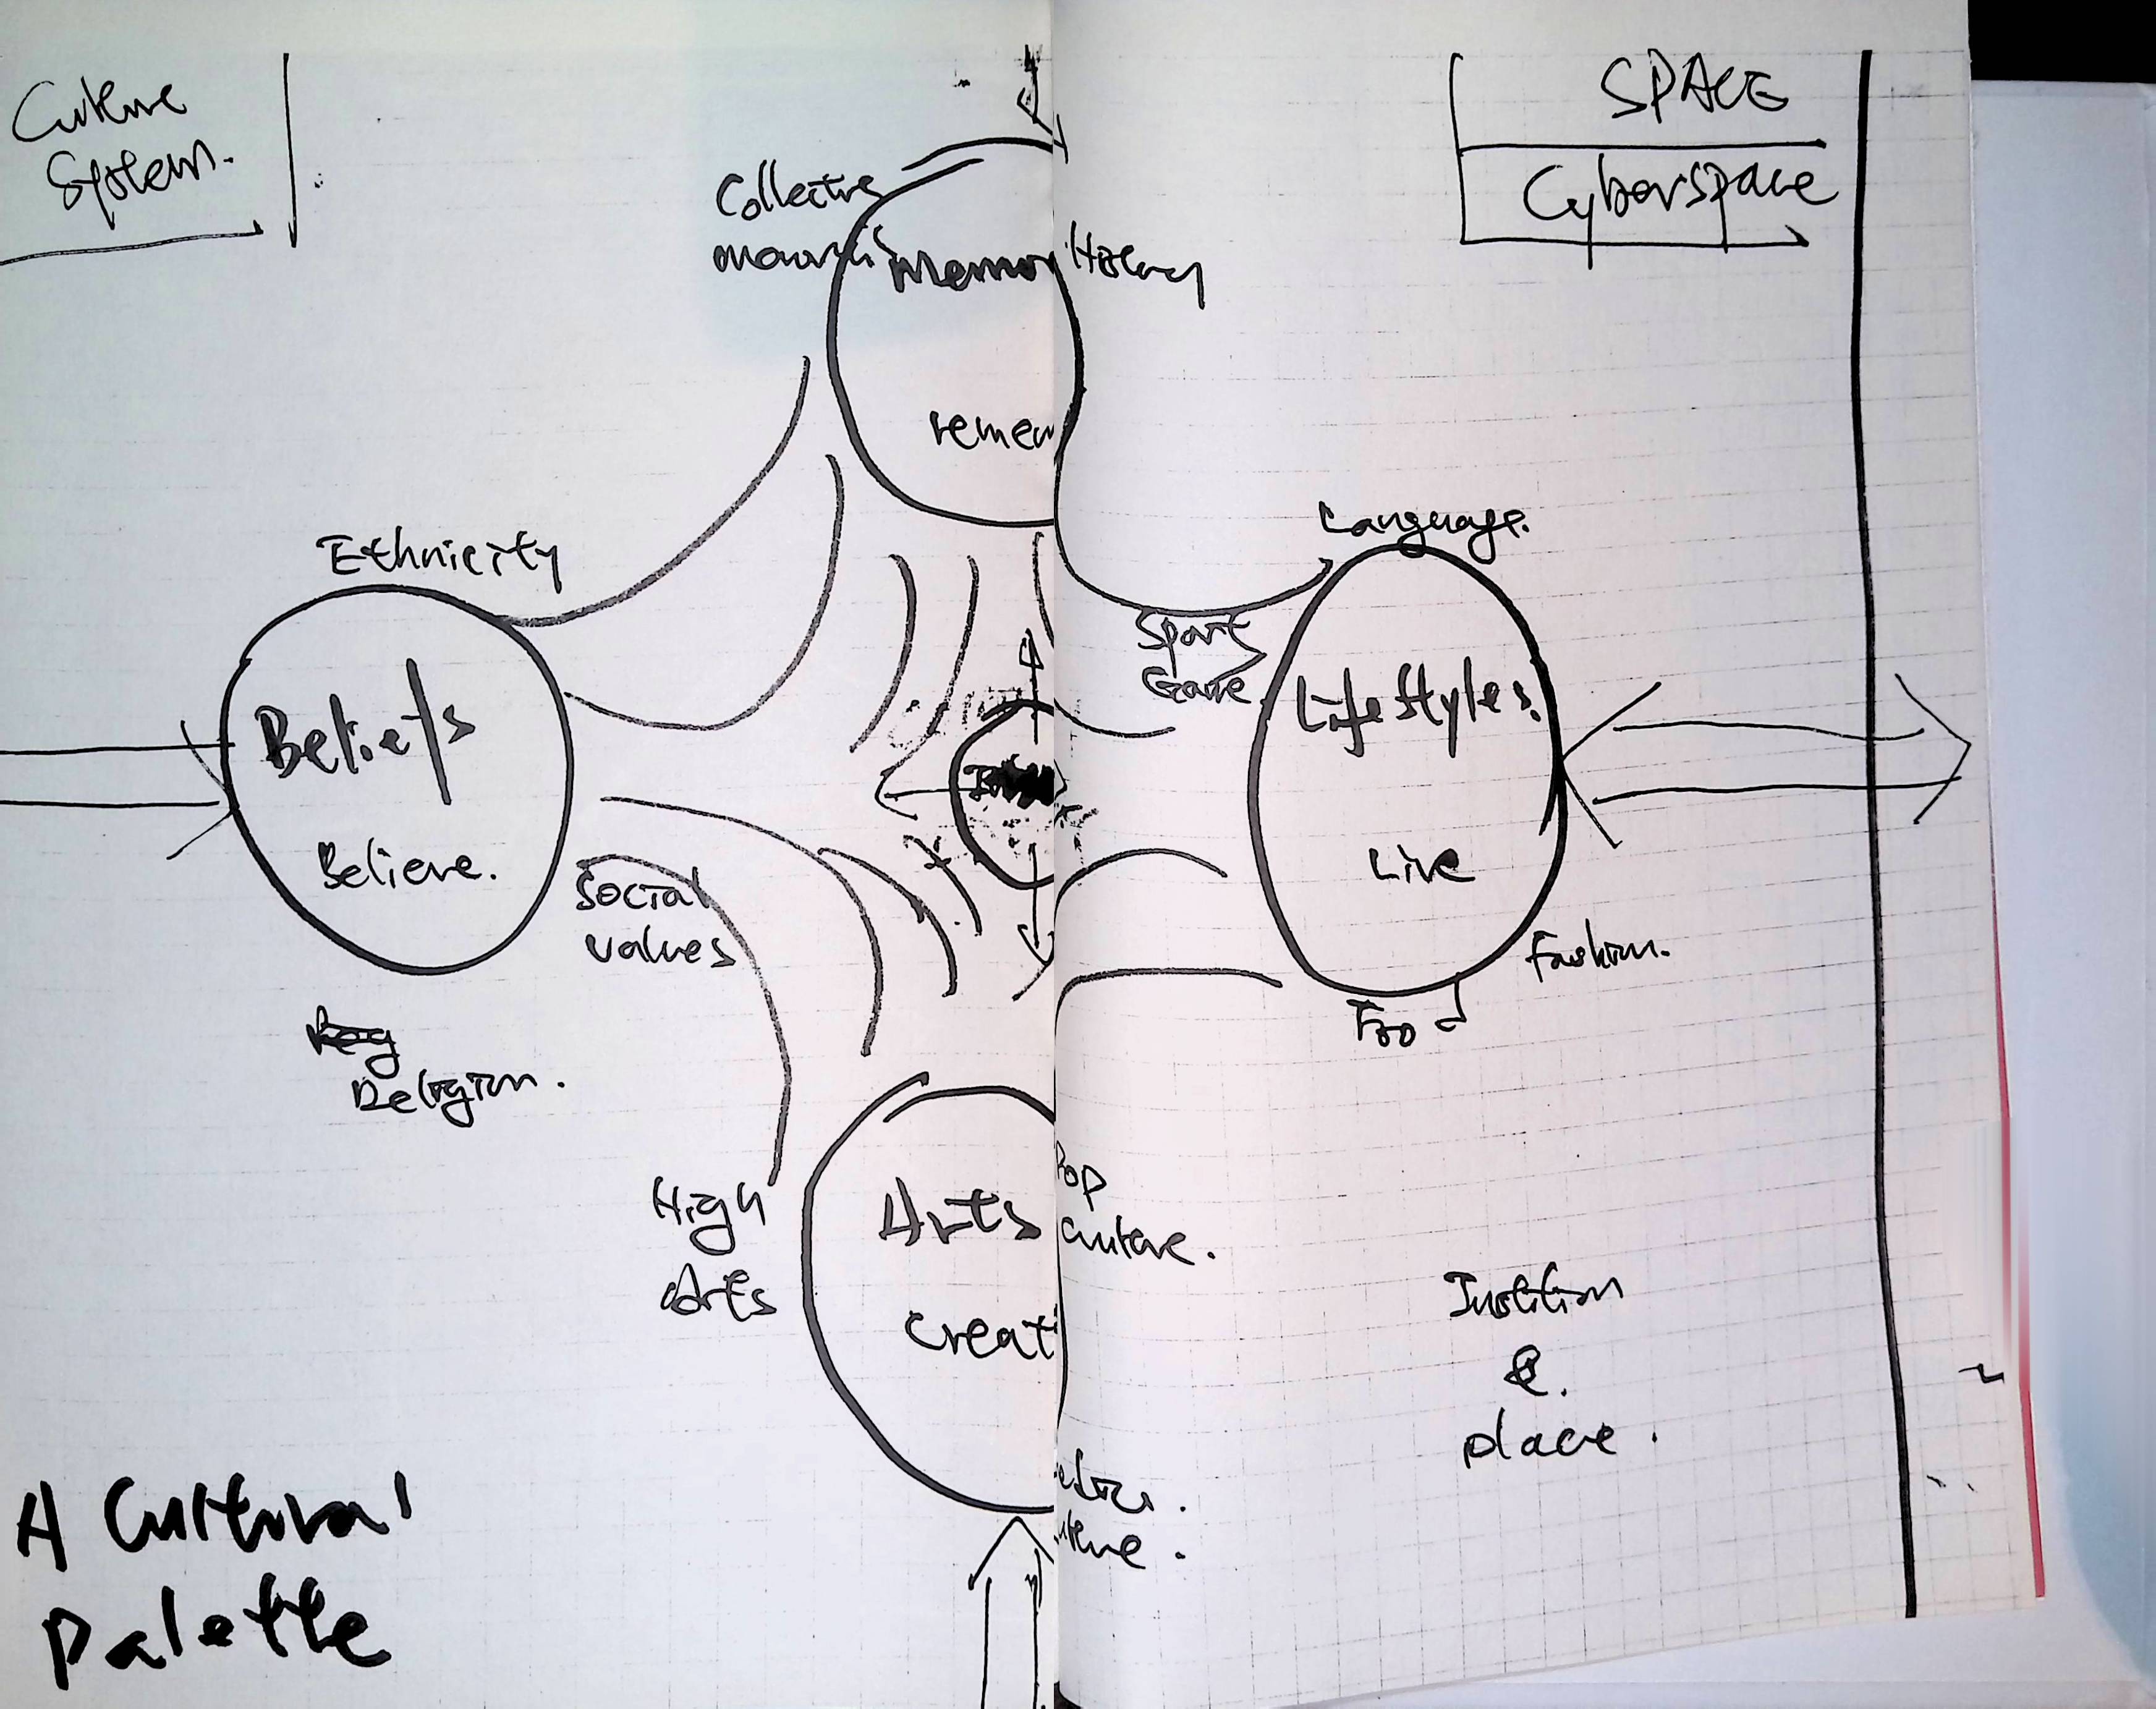 Culture
System.
SPACE
Cyberspace
Collective
Memor
History
remem
Ethnicity
Language.
Sport
Game
Beliefs
Lifestyles.
Believe.
Live
Social
values
Fashion.
Food
Religion.
High
Arts
Arts
Pop
Culture.
Creati
Institution
&
place.
A Cultural
Palette